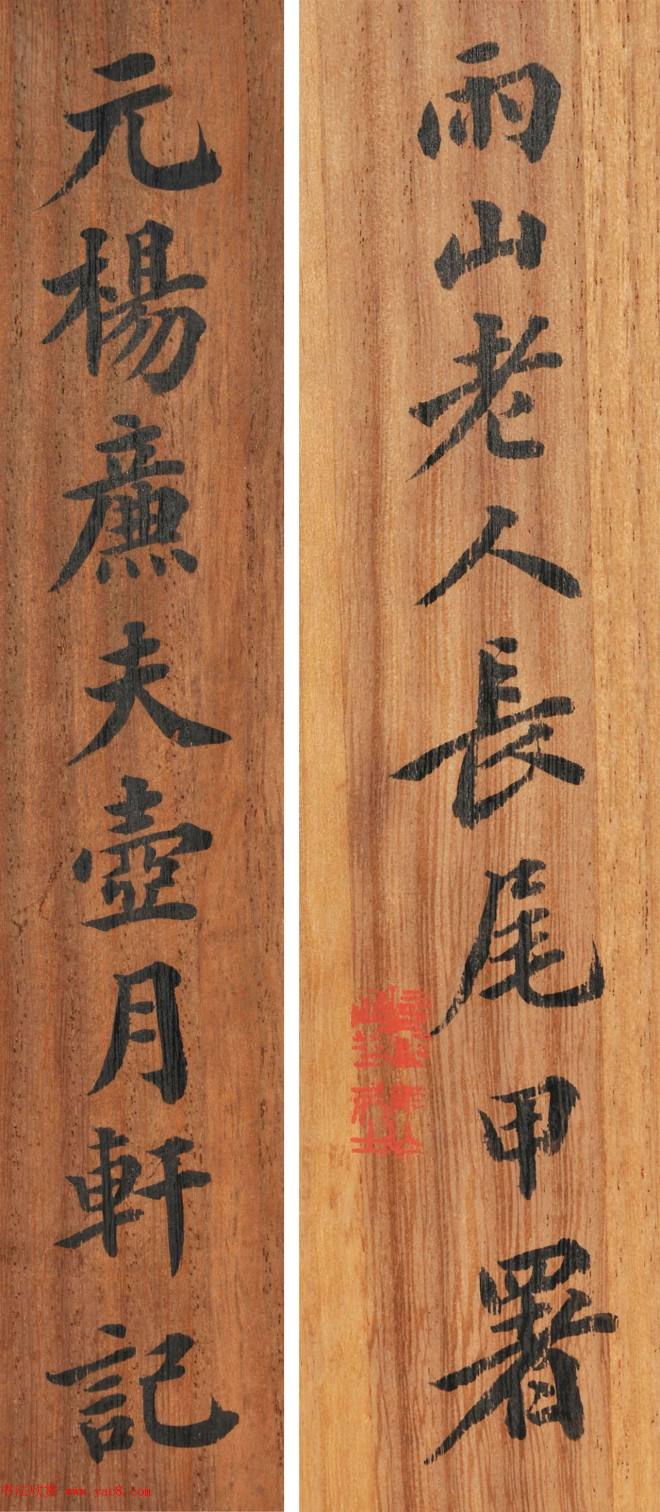 雨山老人長尾甲署
元楊廉夫壺月軒記
书法欣赏 www.yac8.com